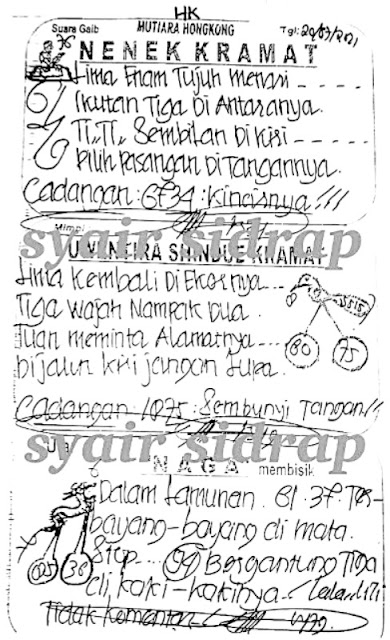 HK
Suara Gaib MUTIARA HONGKONG Tgl: 20/03/2021
NENEK KRAMAT
Lima Enam Tujuh Menari ----
Ikutan Tiga Di Antaranya.
Ti, Ti, Sembilan Di Kiri ----
Pilih Pasangan Di Tangannya.
Cadangan: 6734: Kincisnya!!!
Mimpi
syair sidrap
KRAMAT
Lima Kembali Di Ekornya...
Tiga Wajah Nampak Dua.
Tuan Meminta Alamatnya ---
Dijalur Kiri jangan Lupa.
80 75
Cadangan 1075: Sembunyi Tangan!!
syair sidrap
"NAGA" membisik
Dalam Lamunan. 61.37. Tes-
bayang-bayang di mata.
Stop... 94 Bergantung Tiga
di, kaki-kakinya.
025 30
Tidak Komentar